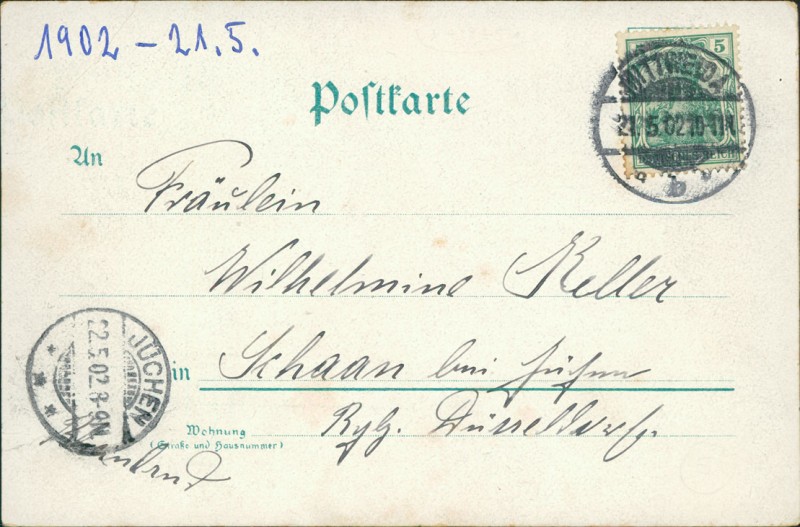 1902 - 21.5.
5
Postkarte
MITTWEIDA
21.5.02 10-11
b
An
Fräulein
Wilhelmine Keller
in Schaan bei Jüchen
Wohnung
(Straße und Hausnummer)
Rgbz. Düsseldorf
JÜCHEN
22.5.02 8-9N